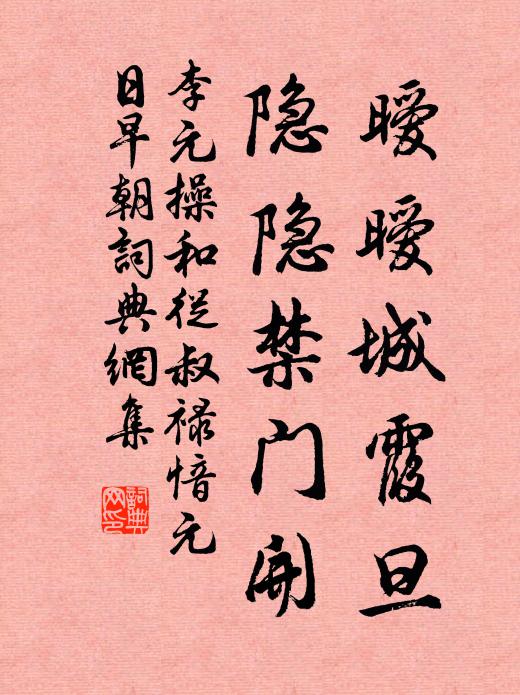 曖曖城霞旦
隐隐禁门開
李元操和從叔禄愔元
日早朝詞典網集
詞典
网印